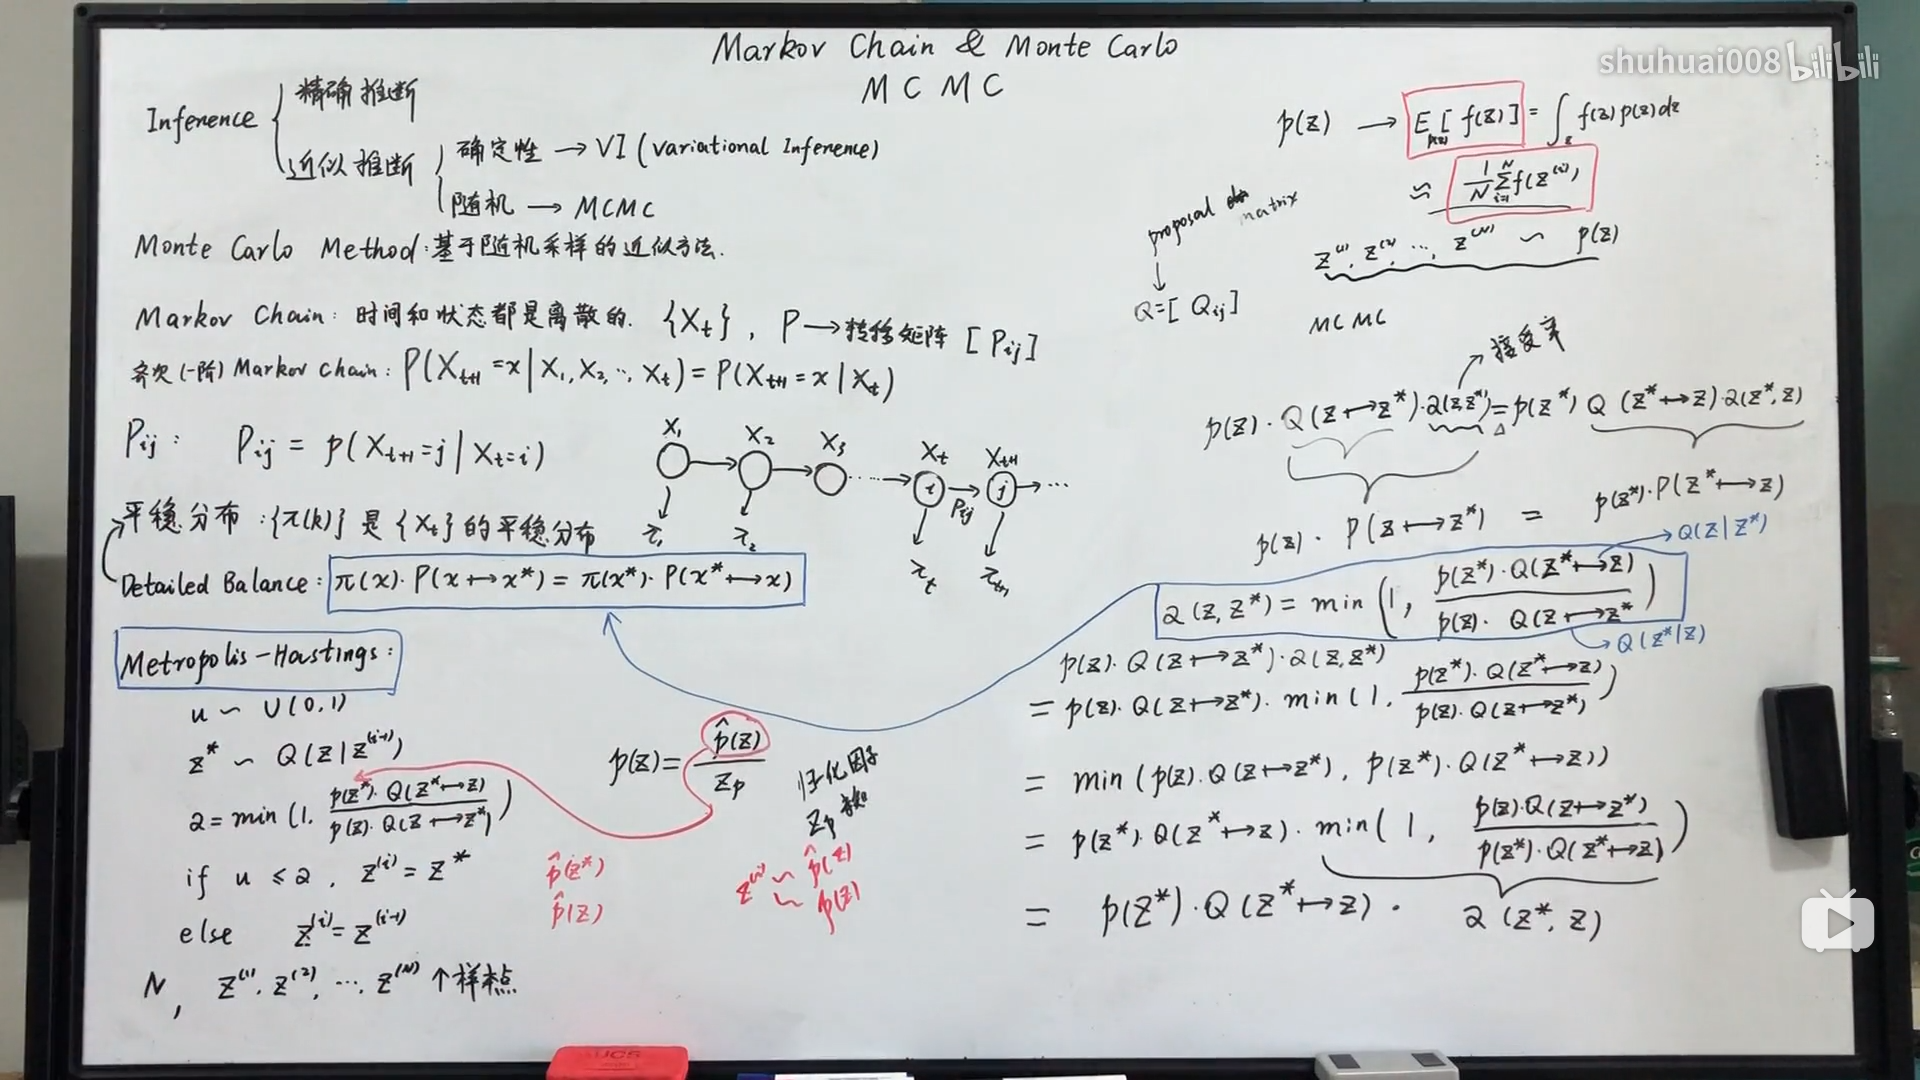 Markov Chain & Monte Carlo
MCMC
shuhuai008 bilibili
Inference { 精确推断
近似推断 { 确定性 → VI (Variational Inference)
随机 → MCMC
Monte Carlo Method: 基于随机采样的近似方法.
Markov Chain: 时间和状态都是离散的. {X_t}, P → 转移矩阵 [P_ij]
齐次(一阶) Markov Chain: P(X_{t+1}=x | X_1, X_2, ..., X_t) = P(X_{t+1}=x | X_t)
P_ij: P_ij = p(X_{t+1}=j | X_t=i)
X_1 X_2 X_3 X_t X_{t+1}
i P_ij j ...
π_1 π_2 π_t π_{t+1}
平稳分布: {π(k)} 是 {X_t} 的平稳分布
Detailed Balance: π(x)·P(x↦x*) = π(x*)·P(x*↦x)
Metropolis-Hastings:
u ~ U(0,1)
z* ~ Q(z|z^(i-1))
α = min(1, p(z*)·Q(z*↦z) / p(z)·Q(z↦z*))
if u ≤ α, z^(i) = z*
else z^(i) = z^(i-1)
N, z^(1), z^(2), ..., z^(N) 个样本点
p(z) = p̂(z) / z_p
归一化因子
z_p
p̂(z*)
p̂(z)
z^(i) ~ p̂(z)
~ p(z)
p(z) → E_{p(z)}[f(z)] = ∫_z f(z)p(z)dz
≈ 1/N Σ_{i=1}^N f(z^(i))
z^(1), z^(2), ..., z^(N) ~ p(z)
MCMC
proposal matrix
↓
Q = [Q_ij]
接受率
p(z)·Q(z↦z*)·α(z,z*) = p(z*) Q(z*↦z)·α(z*,z)
p(z)·P(z↦z*) = p(z*)·P(z*↦z)
Q(z|z*)
α(z,z*) = min(1, p(z*)·Q(z*↦z) / p(z)·Q(z↦z*)
Q(z*|z)
p(z)·Q(z↦z*)·α(z,z*)
= p(z)·Q(z↦z*)·min(1, p(z*)·Q(z*↦z) / p(z)·Q(z↦z*))
= min(p(z)·Q(z↦z*), p(z*)·Q(z*↦z))
= p(z*)·Q(z*↦z)·min(1, p(z)·Q(z↦z*) / p(z*)·Q(z*↦z))
= p(z*)·Q(z*↦z)·α(z*,z)